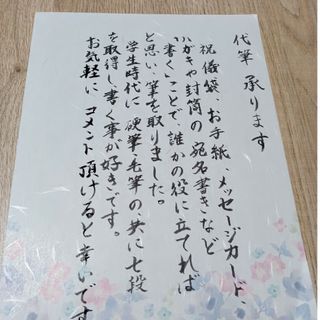 代筆 承ります
祝儀袋、お手紙、メッセージカード、
ハガキや封筒の宛名書きなど
"書く"ことで、誰かの役に立てれば
と思い、筆を取りました。
学生時代に 硬筆・毛筆の共に七段
を取得し、書く事が好きです。
お気軽に、コメント頂けると幸いです